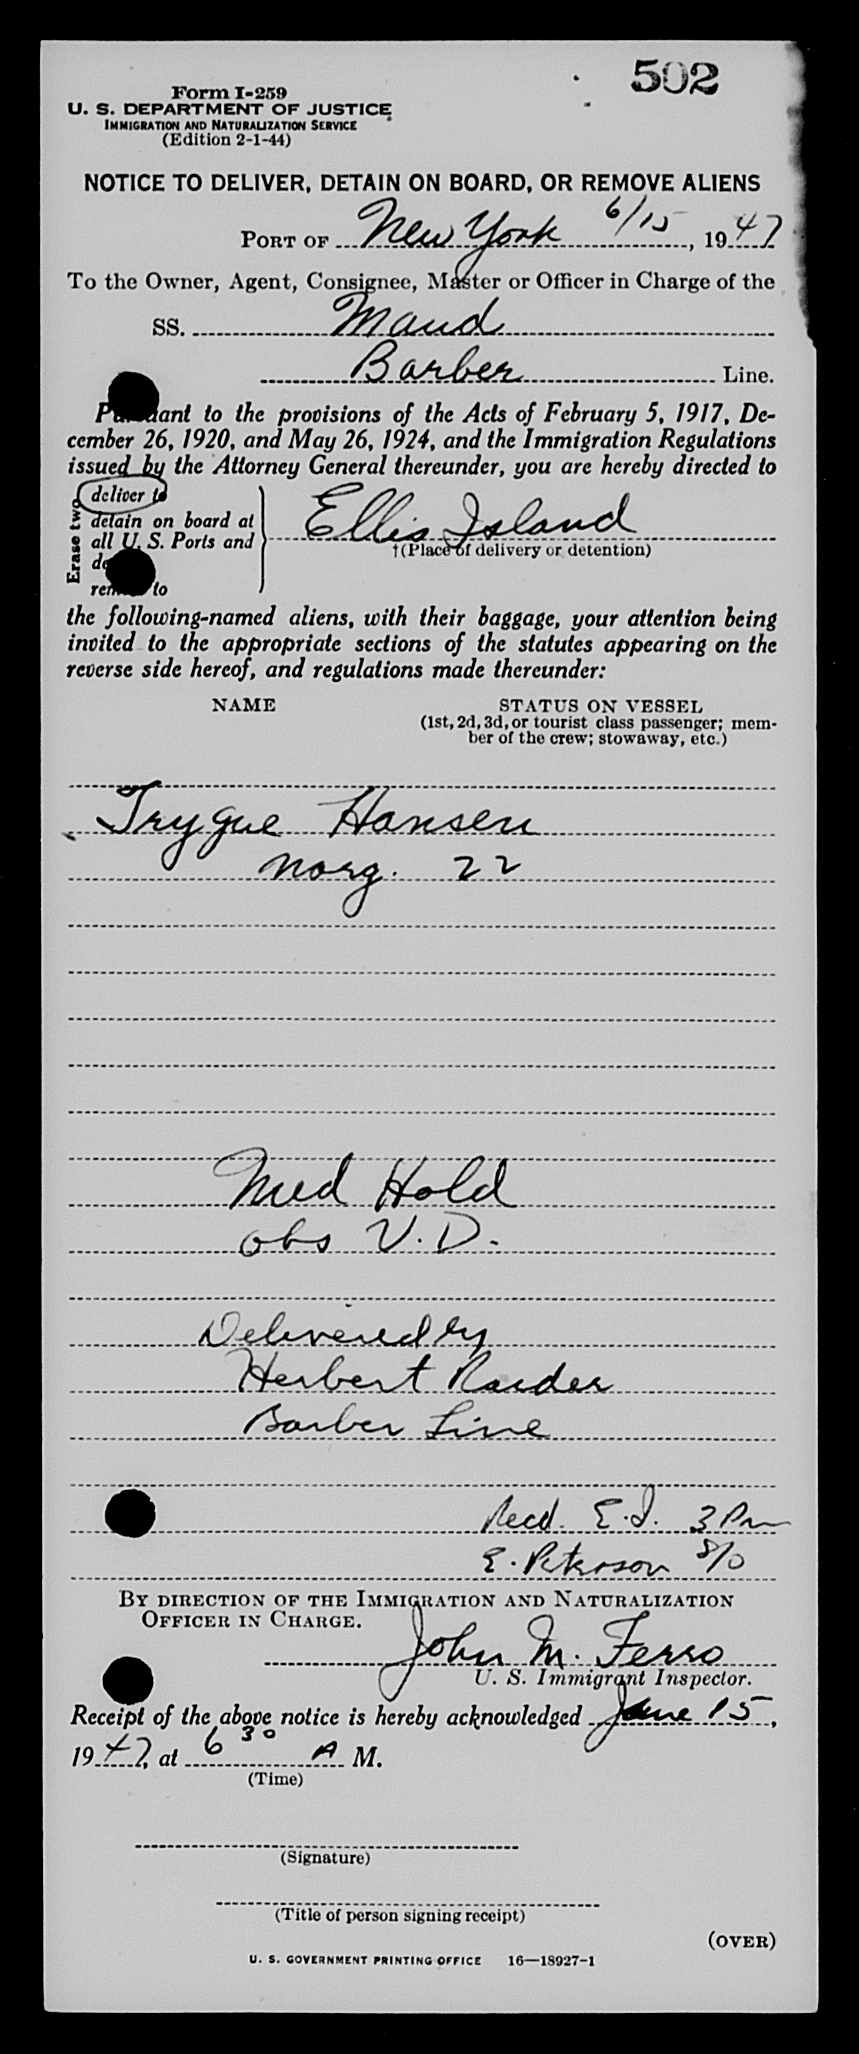 502
Form I-259
U. S. DEPARTMENT OF JUSTICE
IMMIGRATION AND NATURALIZATION SERVICE
(Edition 2-1-44)
NOTICE TO DELIVER, DETAIN ON BOARD, OR REMOVE ALIENS
PORT OF New York 6/15, 1947
To the Owner, Agent, Consignee, Master or Officer in Charge of the
SS. Maud
Barber Line.
Pursuant to the provisions of the Acts of February 5, 1917, De-
cember 26, 1920, and May 26, 1924, and the Immigration Regulations
issued by the Attorney General thereunder, you are hereby directed to
Erase two
deliver to
detain on board at
all U. S. Ports and
de
remove to
Ellis Island
†(Place of delivery or detention)
the following-named aliens, with their baggage, your attention being
invited to the appropriate sections of the statutes appearing on the
reverse side hereof, and regulations made thereunder:
NAME STATUS ON VESSEL
(1st, 2d, 3d, or tourist class passenger; mem-
ber of the crew; stowaway, etc.)
Trygve Hansen
Norg. 22
Med Hold
obs V.D.
Delivered by
Herbert
Barber Line
Recd. E.I. 3 Pm
E. Peterson S/O
BY DIRECTION OF THE IMMIGRATION AND NATURALIZATION
OFFICER IN CHARGE.
John M. Ferro
U. S. Immigrant Inspector.
Receipt of the above notice is hereby acknowledged June 15,
1947, at 6 30 A M.
(Time)
(Signature)
(Title of person signing receipt)
(OVER)
U. S. GOVERNMENT PRINTING OFFICE 16—18927-1